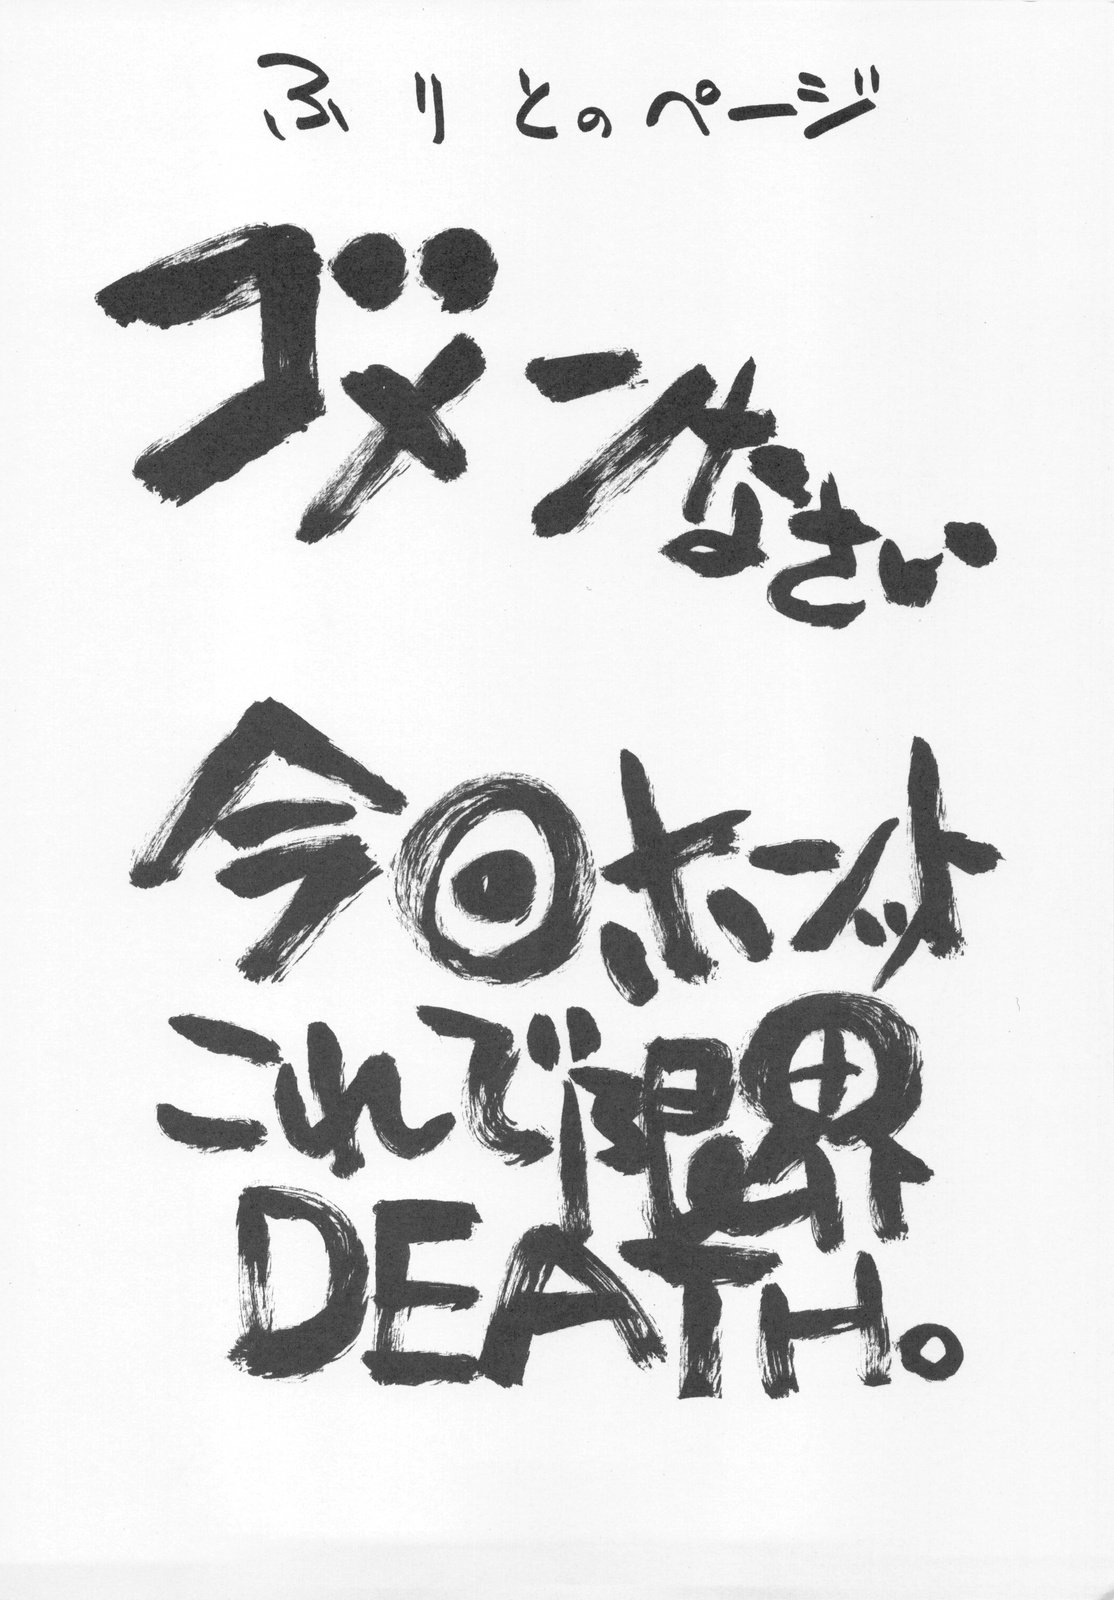 ふりとのページ
ゴメンなさい
今回ホンット
これで限界
DEATH。